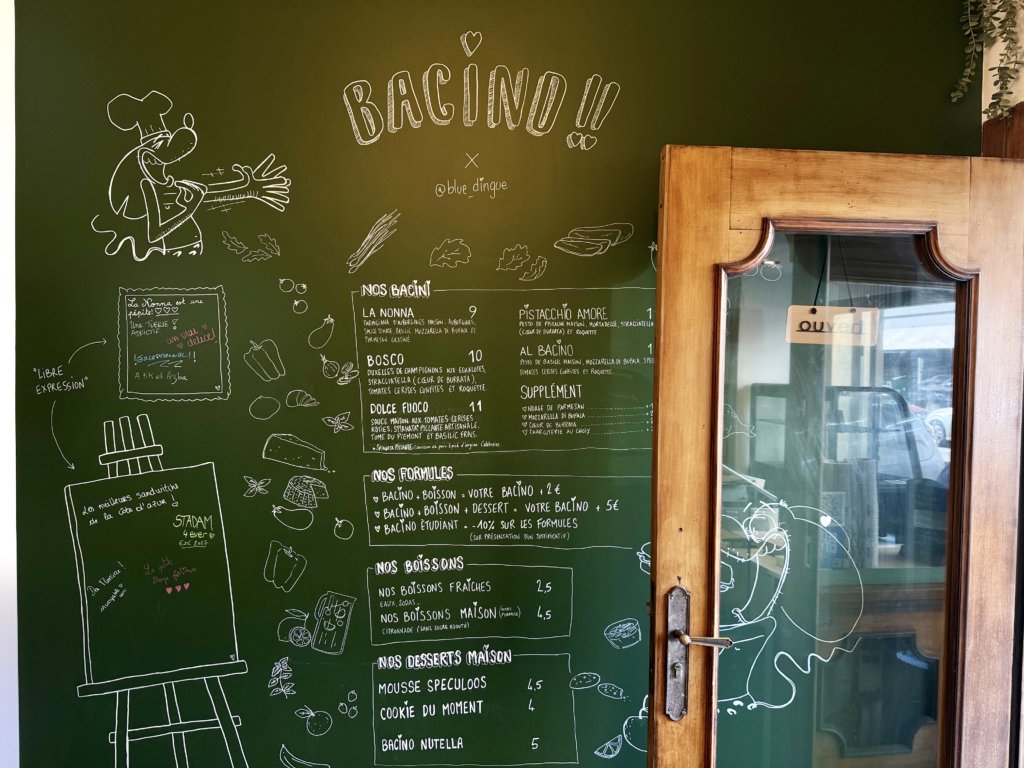 BACINO!!
X
@blue_dingue
La Nonna est une
pépite!
Une TUERIE
ADDICTIF
un vrai
délice!
"LIBRE
EXPRESSION"
Les meilleurs sandwichs
de la côte d'azur!
STADAM
4 ever
NOS BACINI
LA NONNA 9
PARMIGIANA D'AUBERGINES MAISON, AUBERGINES,
SAUCE TOMATE, BASILIC, MOZZARELLA DI BUFALA ET
PARMESAN GRATINÉ
BOSCO 10
DUXELLES DE CHAMPIGNONS AUX ECHALOTES,
STRACCIATELLA (CŒUR DE BURRATA),
TOMATES CERISES CONFITES ET ROQUETTE
DOLCE FUOCO 11
SAUCE MAISON AUX TOMATES CERISES
ROTIES, SPIANATA PICCANTE ARTISANALE,
TOME DU PIEMONT ET BASILIC FRAIS.
PISTACCHIO AMORE 1
PESTO DE PISTACHE MAISON, MORTADELLE, STRACCIATELLA
(CŒUR DE BURRATA) ET ROQUETTE
AL BACINO 1
PESTO DE BASILIC MAISON, MOZZARELLA DI BUFALA,
TOMATES CERISES CONFITES ET ROQUETTE.
SUPPLÉMENT
NUAGE DE PARMESAN
MOZZARELLA DI BUFALA
CŒUR DE BURRATA
CHARCUTERIE AU CHOIX
NOS FORMULES
BACINO + BOISSON = VOTRE BACINO + 2€
BACINO + BOISSON + DESSERT = VOTRE BACINO + 5€
BACINO ÉTUDIANT = -10% SUR LES FORMULES
(SUR PRÉSENTATION D'UN JUSTIFICATIF)
NOS BOISSONS
NOS BOISSONS FRAÎCHES 2,5
EAUX, SODAS
NOS BOISSONS MAISON (HORS FORMULE) 4,5
CITRONNADE (SANS SUCRE AJOUTÉ)
NOS DESSERTS MAISON
MOUSSE SPECULOOS 4,5
COOKIE DU MOMENT 4
BACINO NUTELLA 5
ouvert